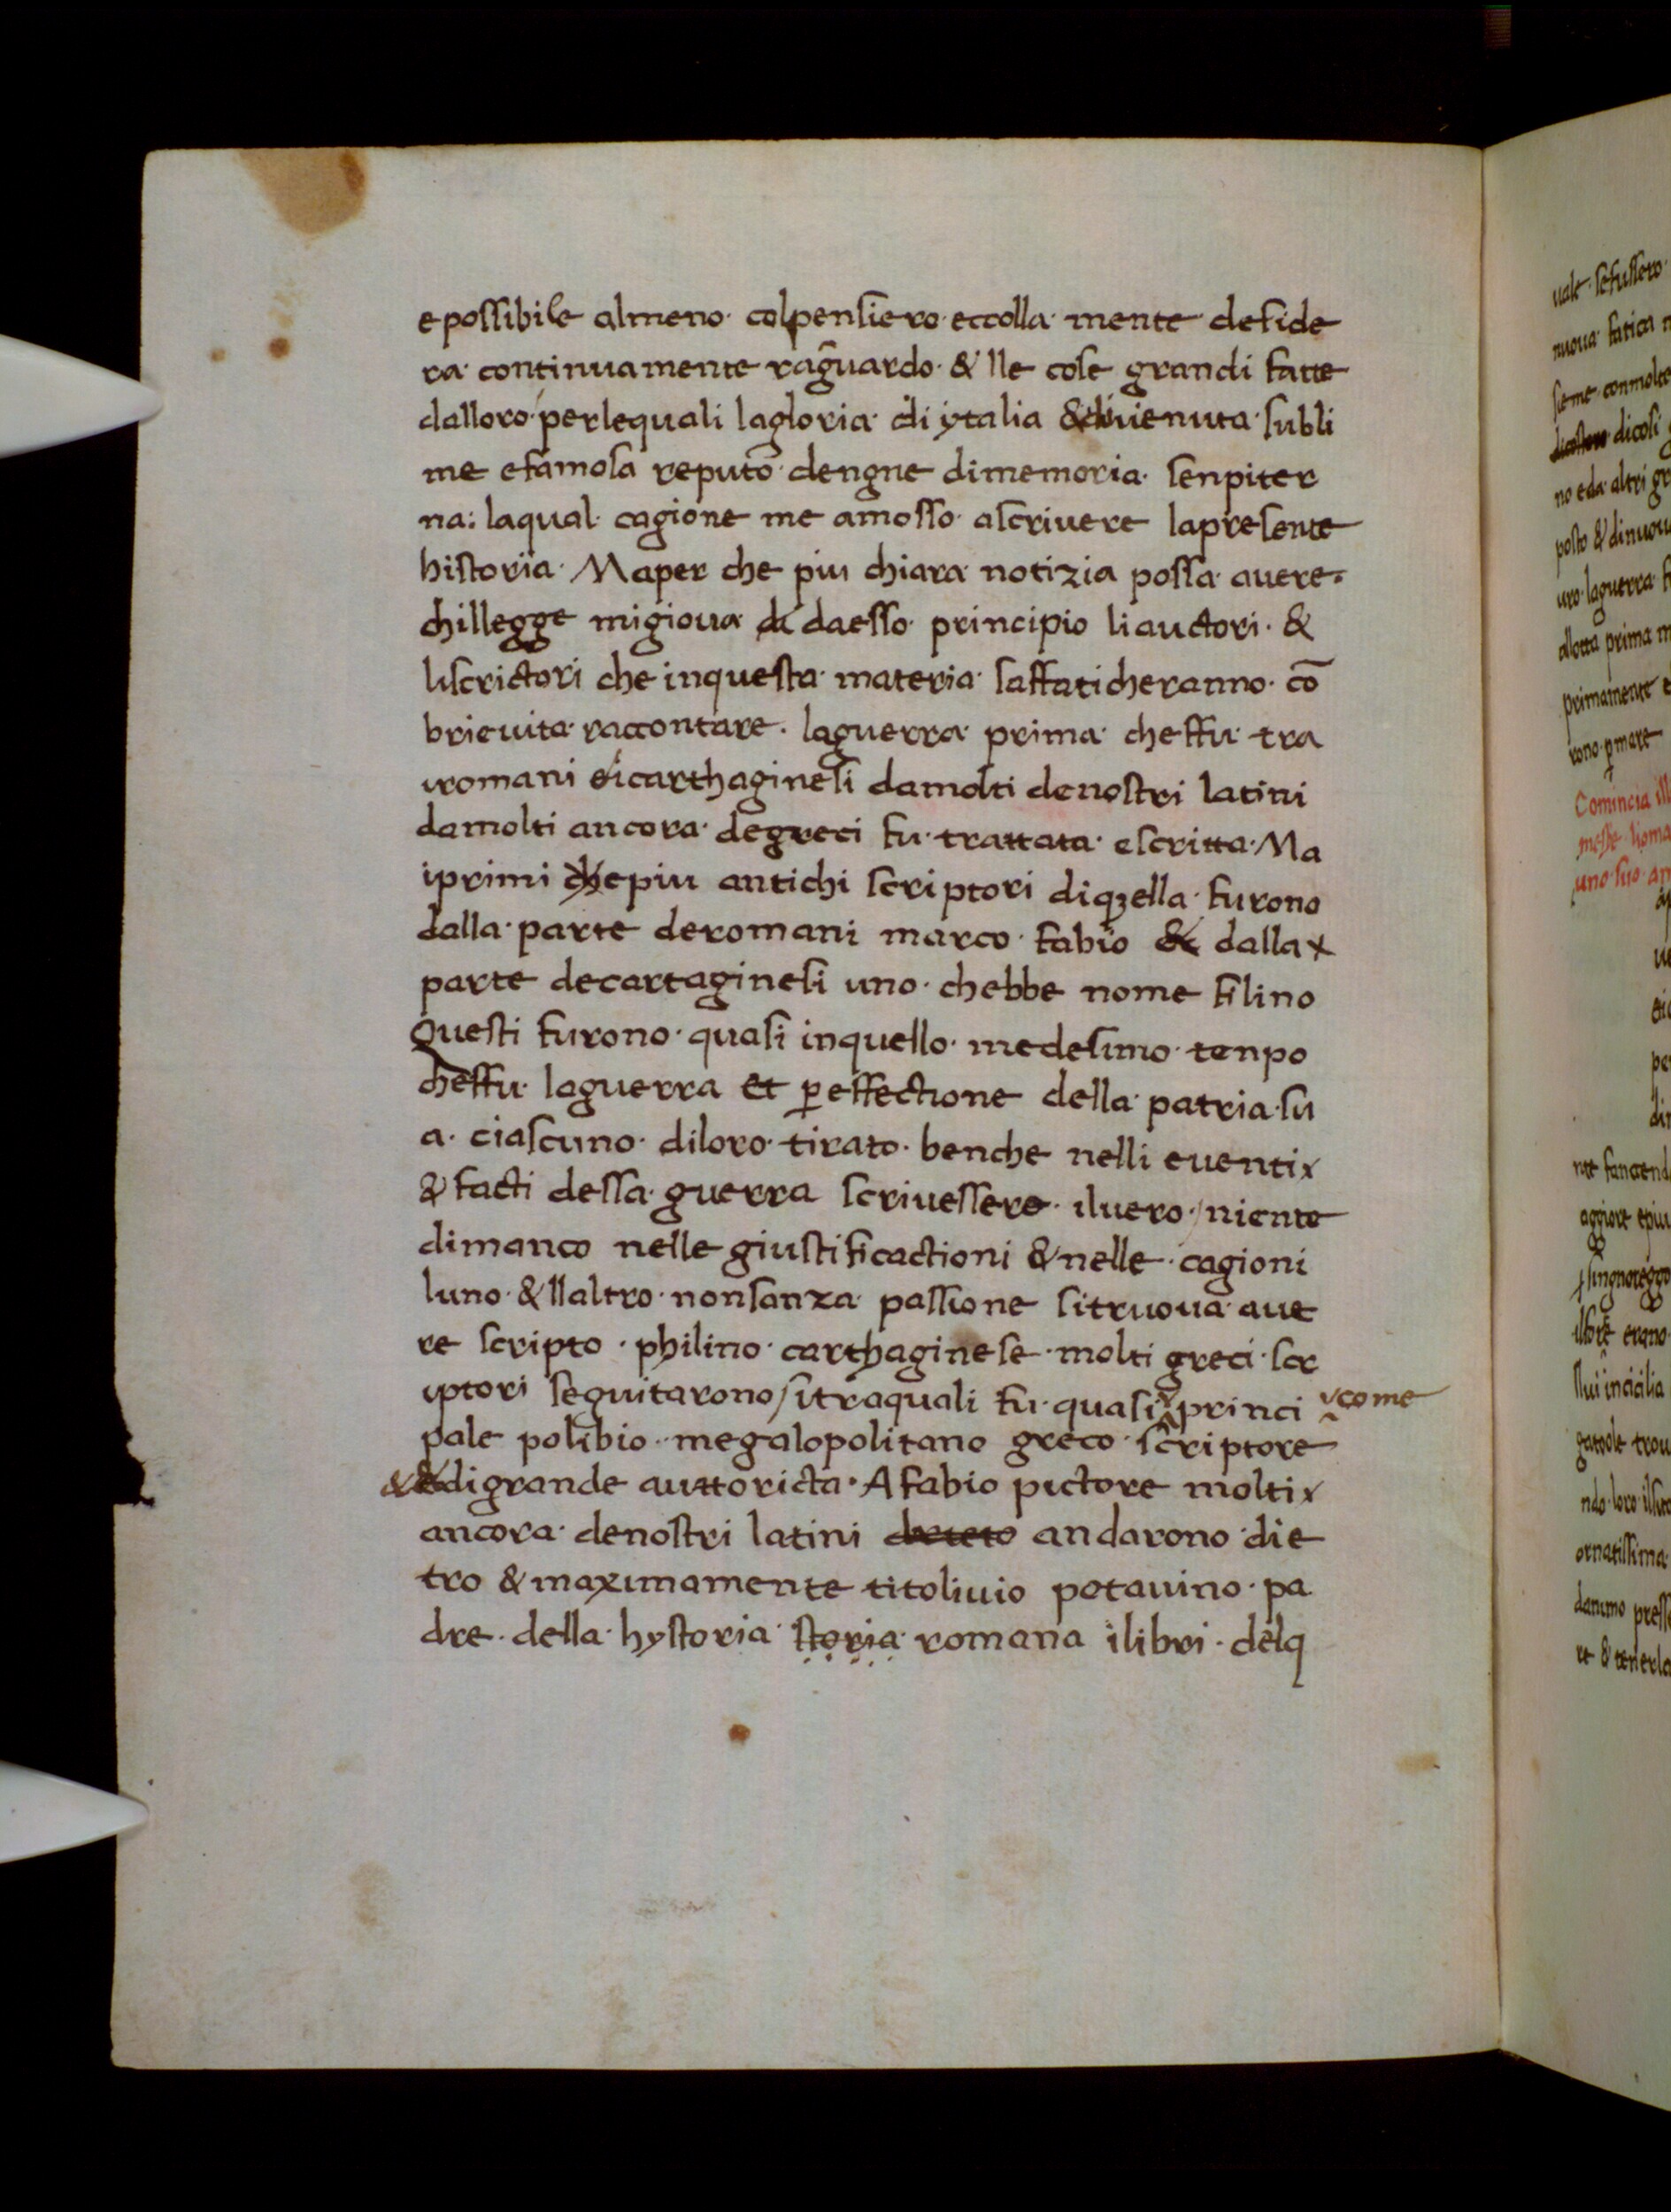 epossibile almeno· colpensiero·eccolla· mente· deside
ra· continuamente raguardo· & lle cose grandi fatte
dalloro·perlequali lagloria· di ytalia & divienuta·subli
me efamosa reputo· dengne dimemoria· senpiter
na: laqual· cagione me amosso· ascrivere lapresente
historia· Maper che piu chiara notizia possa· avere·
chillegge migiova da daesso· principio liauctori· &
liscrictori che inquesta· materia· saffaticheranno· cō
brievita·raccontare· laguerra· prima· cheffu· tra
iromani eicarthaginesi damolti denostri latini
damolti ancora· degreci fu·trattata· escritta·Ma
iprimi chepiu antichi scriptori diqzella·furono
dalla·parte deromani marco·fabio & dalla
parte decartaginesi uno·chebbe nome filino
Questi furono·quasi inquello·medesimo·tenpo
cheffu·laguerra et ꝑeffectione della·patria·su
a·ciascuno·diloro·tirato·benche nelli eventi
& facti dessa·guerra scrivessero·iluero·/niente
dimanco nelle giustificactioni & nelle·cagioni
luno·& llaltro·nonsanza·passione sitruova·ave
re scripto·philino·carthaginese·molti greci·scr
iptori seguitarono/itraquali fu·quasi princi come
pale polibio·megalopolitano greco·scriptore
& & digrande auttoricta·Afabio pictore molti
ancora·denostri latini andarono·die
tro & maximamente titolivio patavino·pa
dre·della·hystoria·storia·romana ilibri·delq
uale·sefussero·
nuova·fatica
sieme·conmolte
dicosi
no eda·altri
posto & dinuou
uro·laguerra
allotta prima
primamente
rono·ꝑmare
Comincia
messe
uno·suo·
aggiore epiu
erano·
incicilia
ndo·loro·
ornatissima·
danimo
re & tenerla